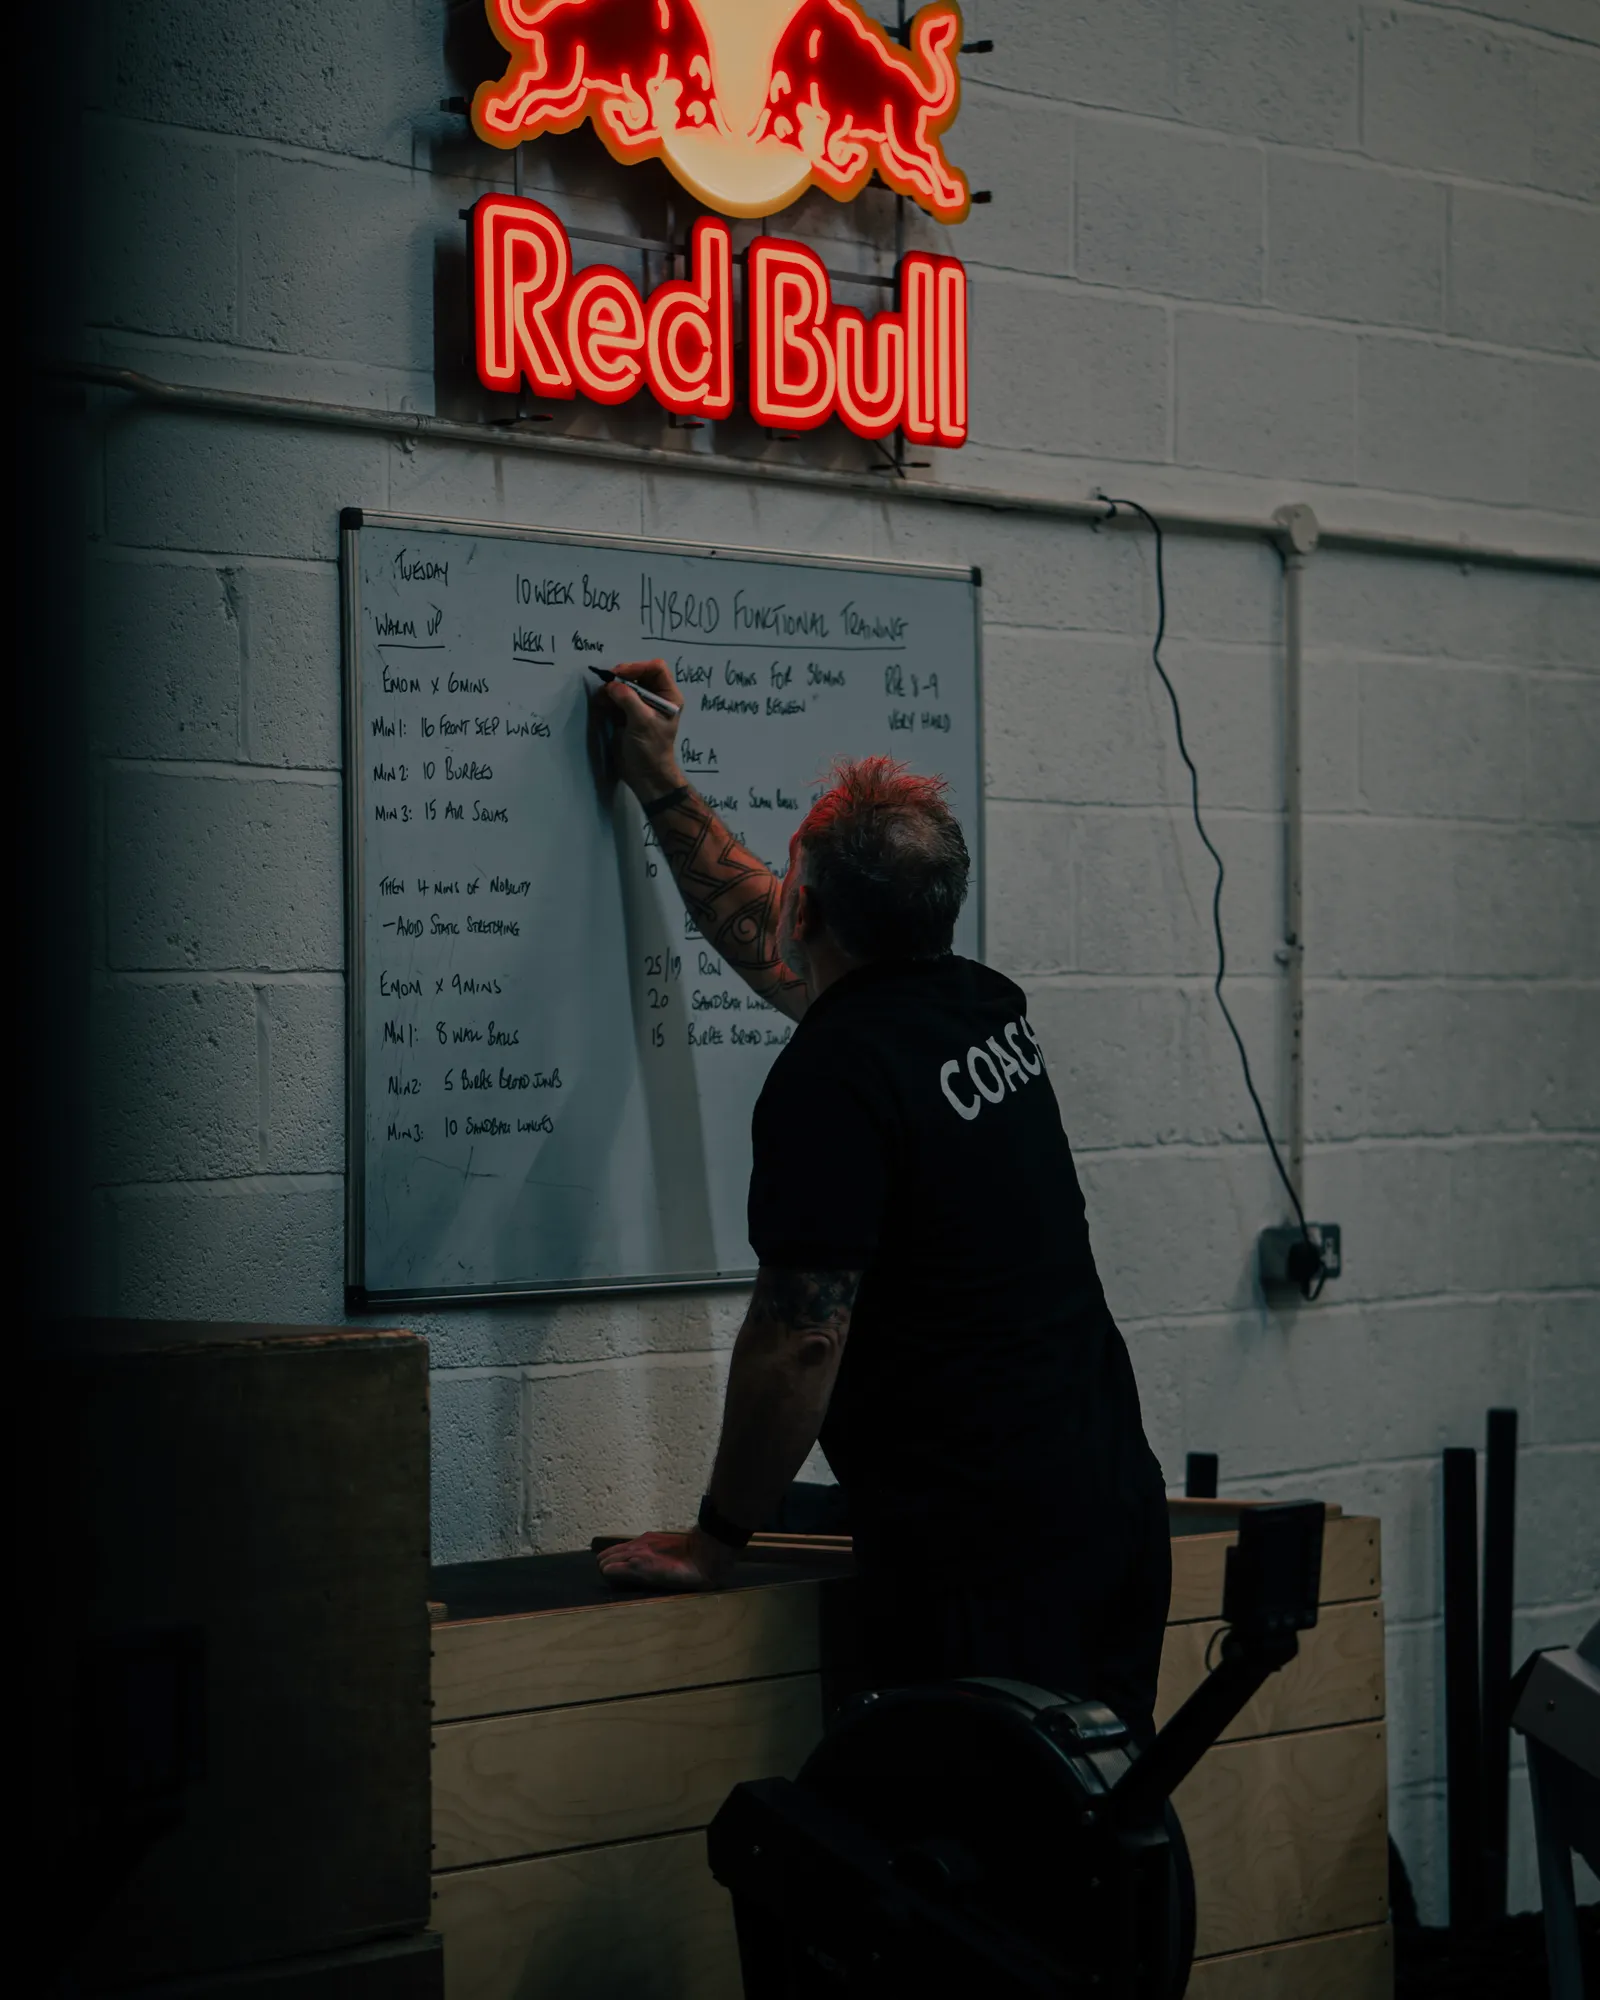 Red Bull
TUESDAY
10 WEEK BLOCK HYBRID FUNCTIONAL TRAINING
WARM UP
WEEK 1 TESTING
EMOM X 6MINS
MIN 1: 16 FRONT STEP LUNGES
MIN 2: 10 BURPEES
MIN 3: 15 AIR SQUATS
THEN 4 MINS OF MOBILITY
- AVOID STATIC STRETCHING
EMOM X 9MINS
MIN 1: 8 WALL BALLS
MIN 2: 5 BURPEE BROAD JUMPS
MIN 3: 10 SANDBAG LUNGES
EVERY 6MINS FOR 36MINS
ALTERNATING BETWEEN
RPE 8-9
VERY HARD
PART A
SLAM BALLS
10
25/19 ROW
20 SANDBAG LUNGES
15 BURPEE BROAD JUMPS
COACH